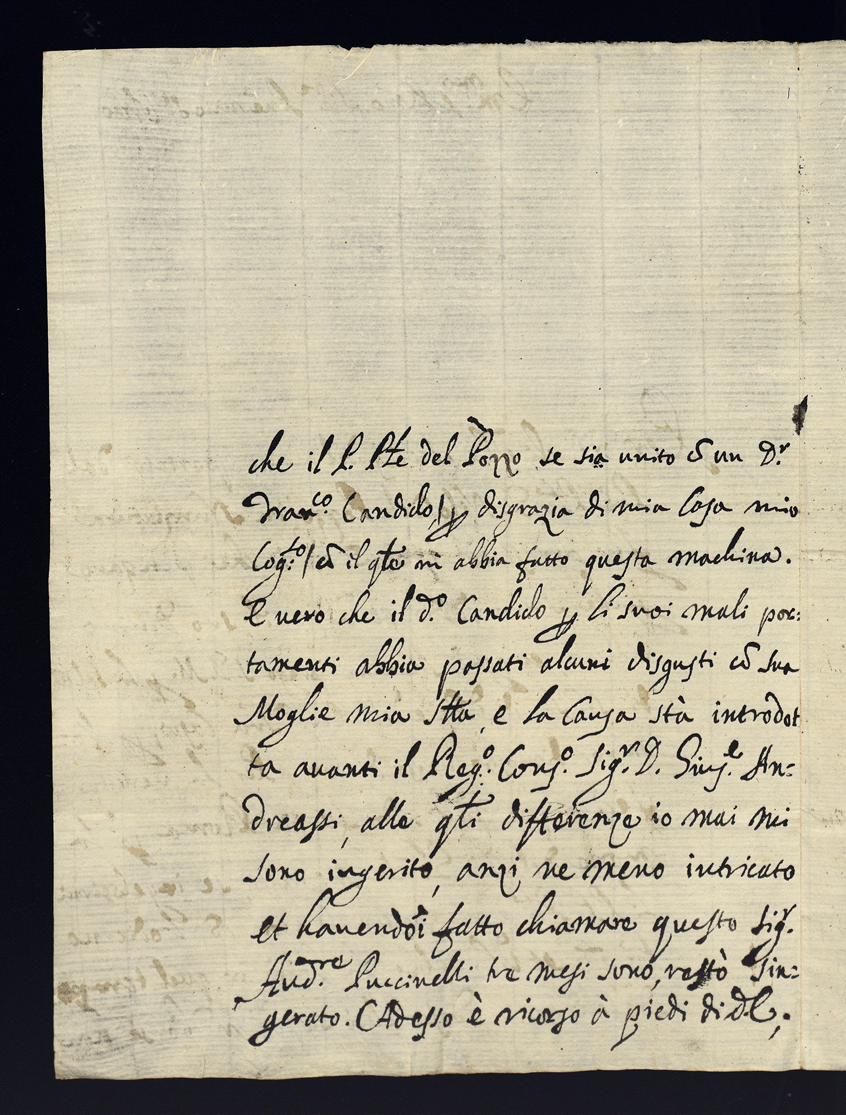 che il P. Pñte del Pozzo se sia unito cõ un D.r
Fran.co Candido / ꝑ disgrazia di mia Casa mio
Cog.to / cõ il qłe m̃ abbia fatto questa machina.
E vero che il d.o Candido ꝑ li suoi mali por:
tamenti abbia passati alcuni disgusti cõ sua
Moglie mia Stta, e la Causa stà introdot
ta auanti il Reg.o Cons.o Sig.r D. Gius.e An:
dreassi, alle qłi differenze io mai mi
sono ingerito, anzi ne meno intricato
et hauendo fatto chiamare questo Sig.r
Aud.re Puccinelli tre mesi sono, restò sin:
gerato. Adesso è ricorso à piedi di